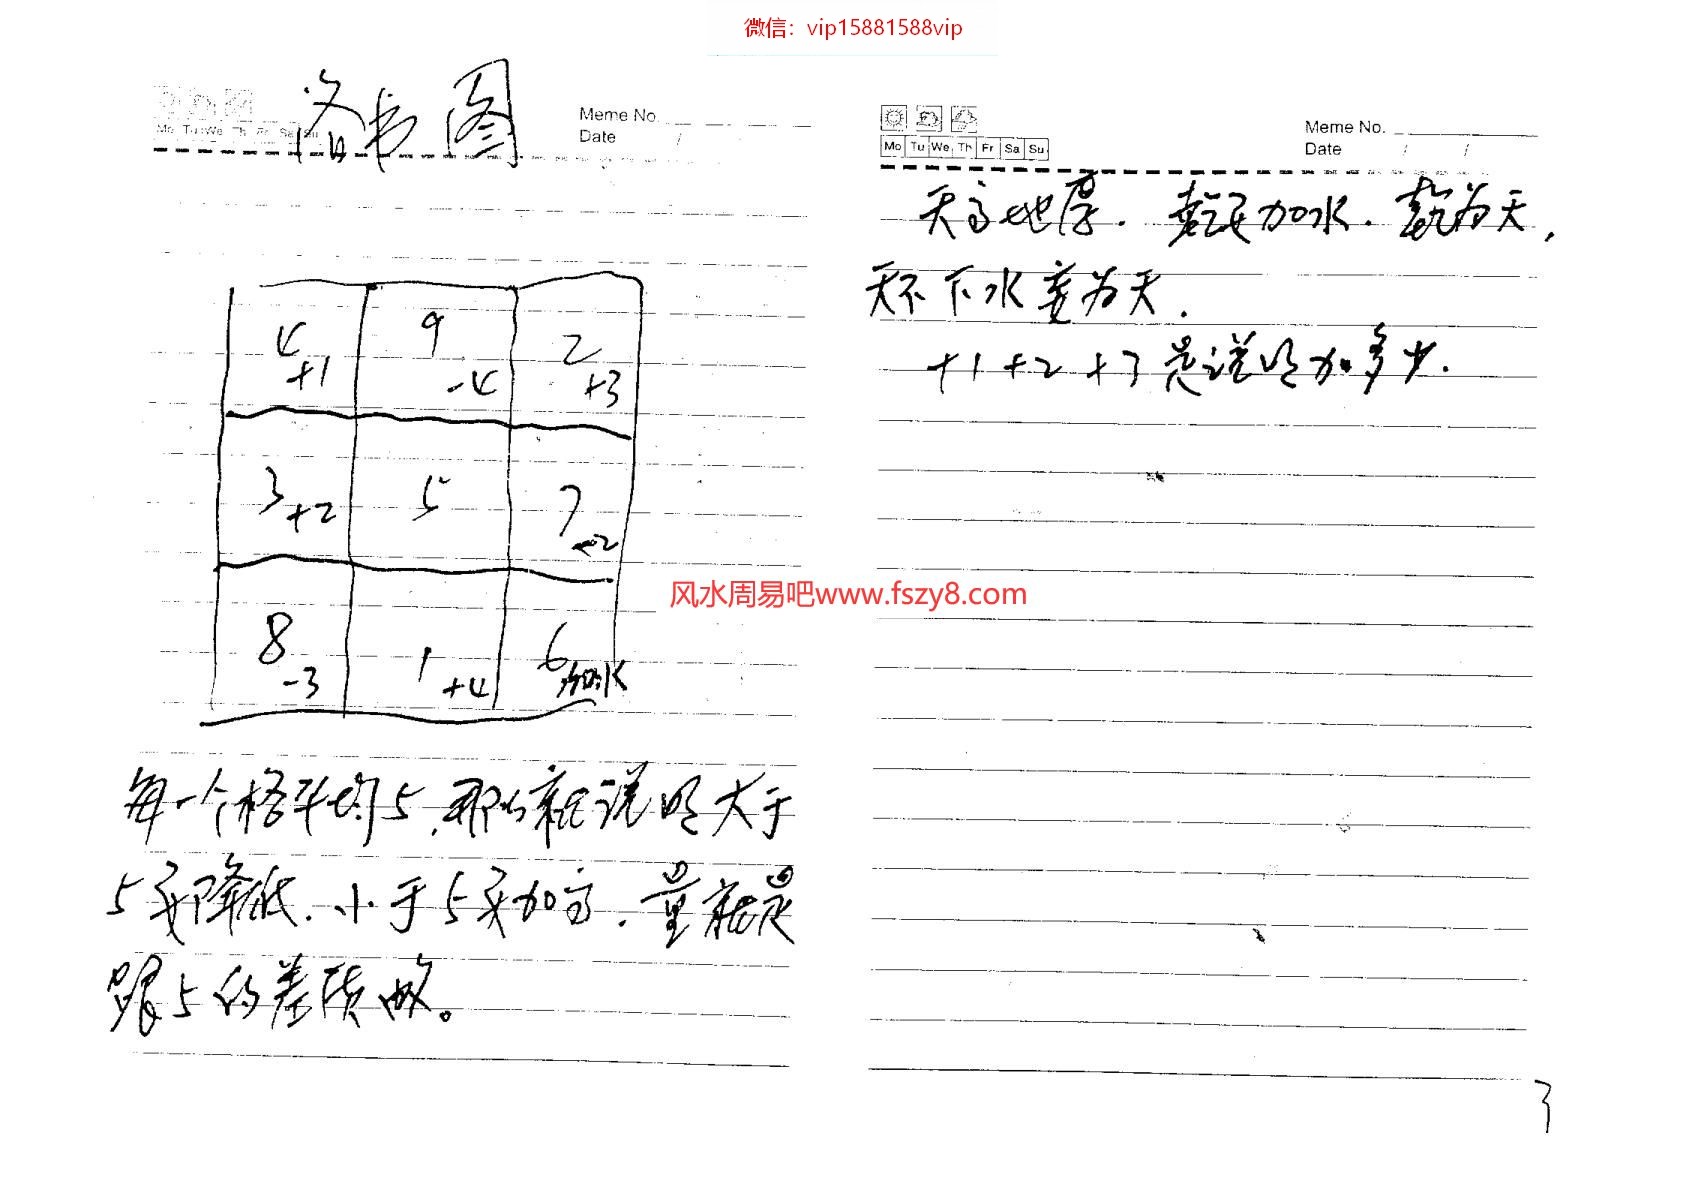 微信：vip15881588vip
洛书图
Meme No.
Date /
Mo Tu We Th Fr Sa Su
4 9 2
+1 -4 +3
3 5 7
+2 -2
8 1 6
-3 +4 加水
每一个格平均5，那么就说明大于
5要降低，小于5要加高，量就是
跟5的差质做。
Mo Tu We Th Fr Sa Su
Meme No.
Date / /
天高地厚．乾艮加水．乾为天，
天不下水变为天．
+1 +2 +3 是说明加多少．
风水周易吧www.fszy8.com
3